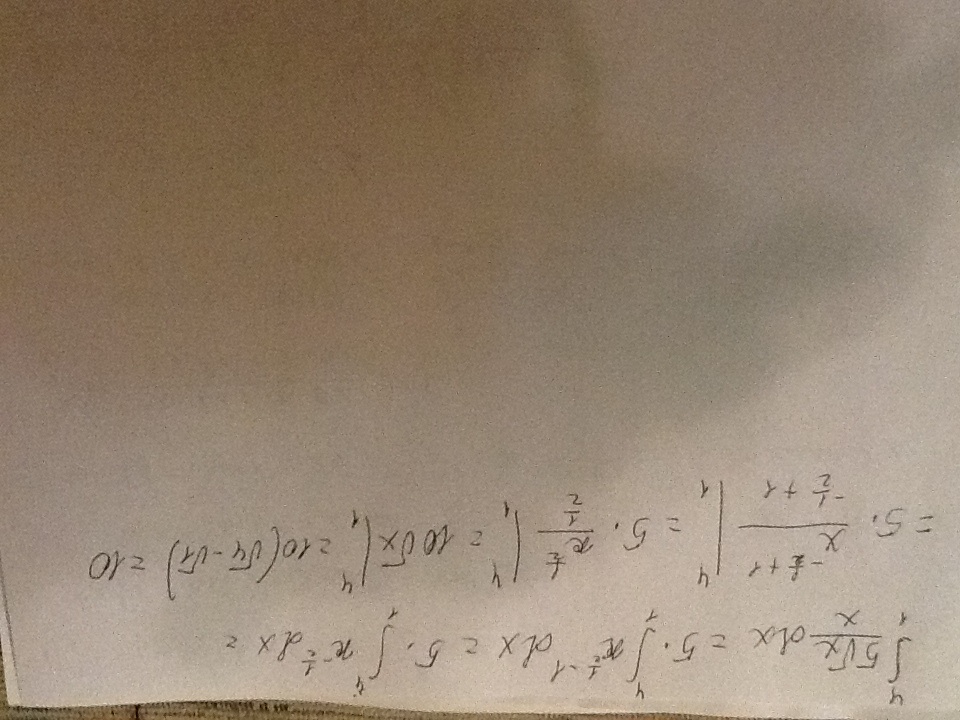 ∫₁⁴ 5√x/x dx = 5·∫₁⁴ x^(1/2 -1) dx = 5·∫₁⁴ x^(-1/2) dx =
= 5· x^(-1/2 +1)/(-1/2 +1) |₁⁴ = 5· x^(1/2)/(1/2) |₁⁴ = 10√x |₁⁴ = 10(√4-√1) = 10